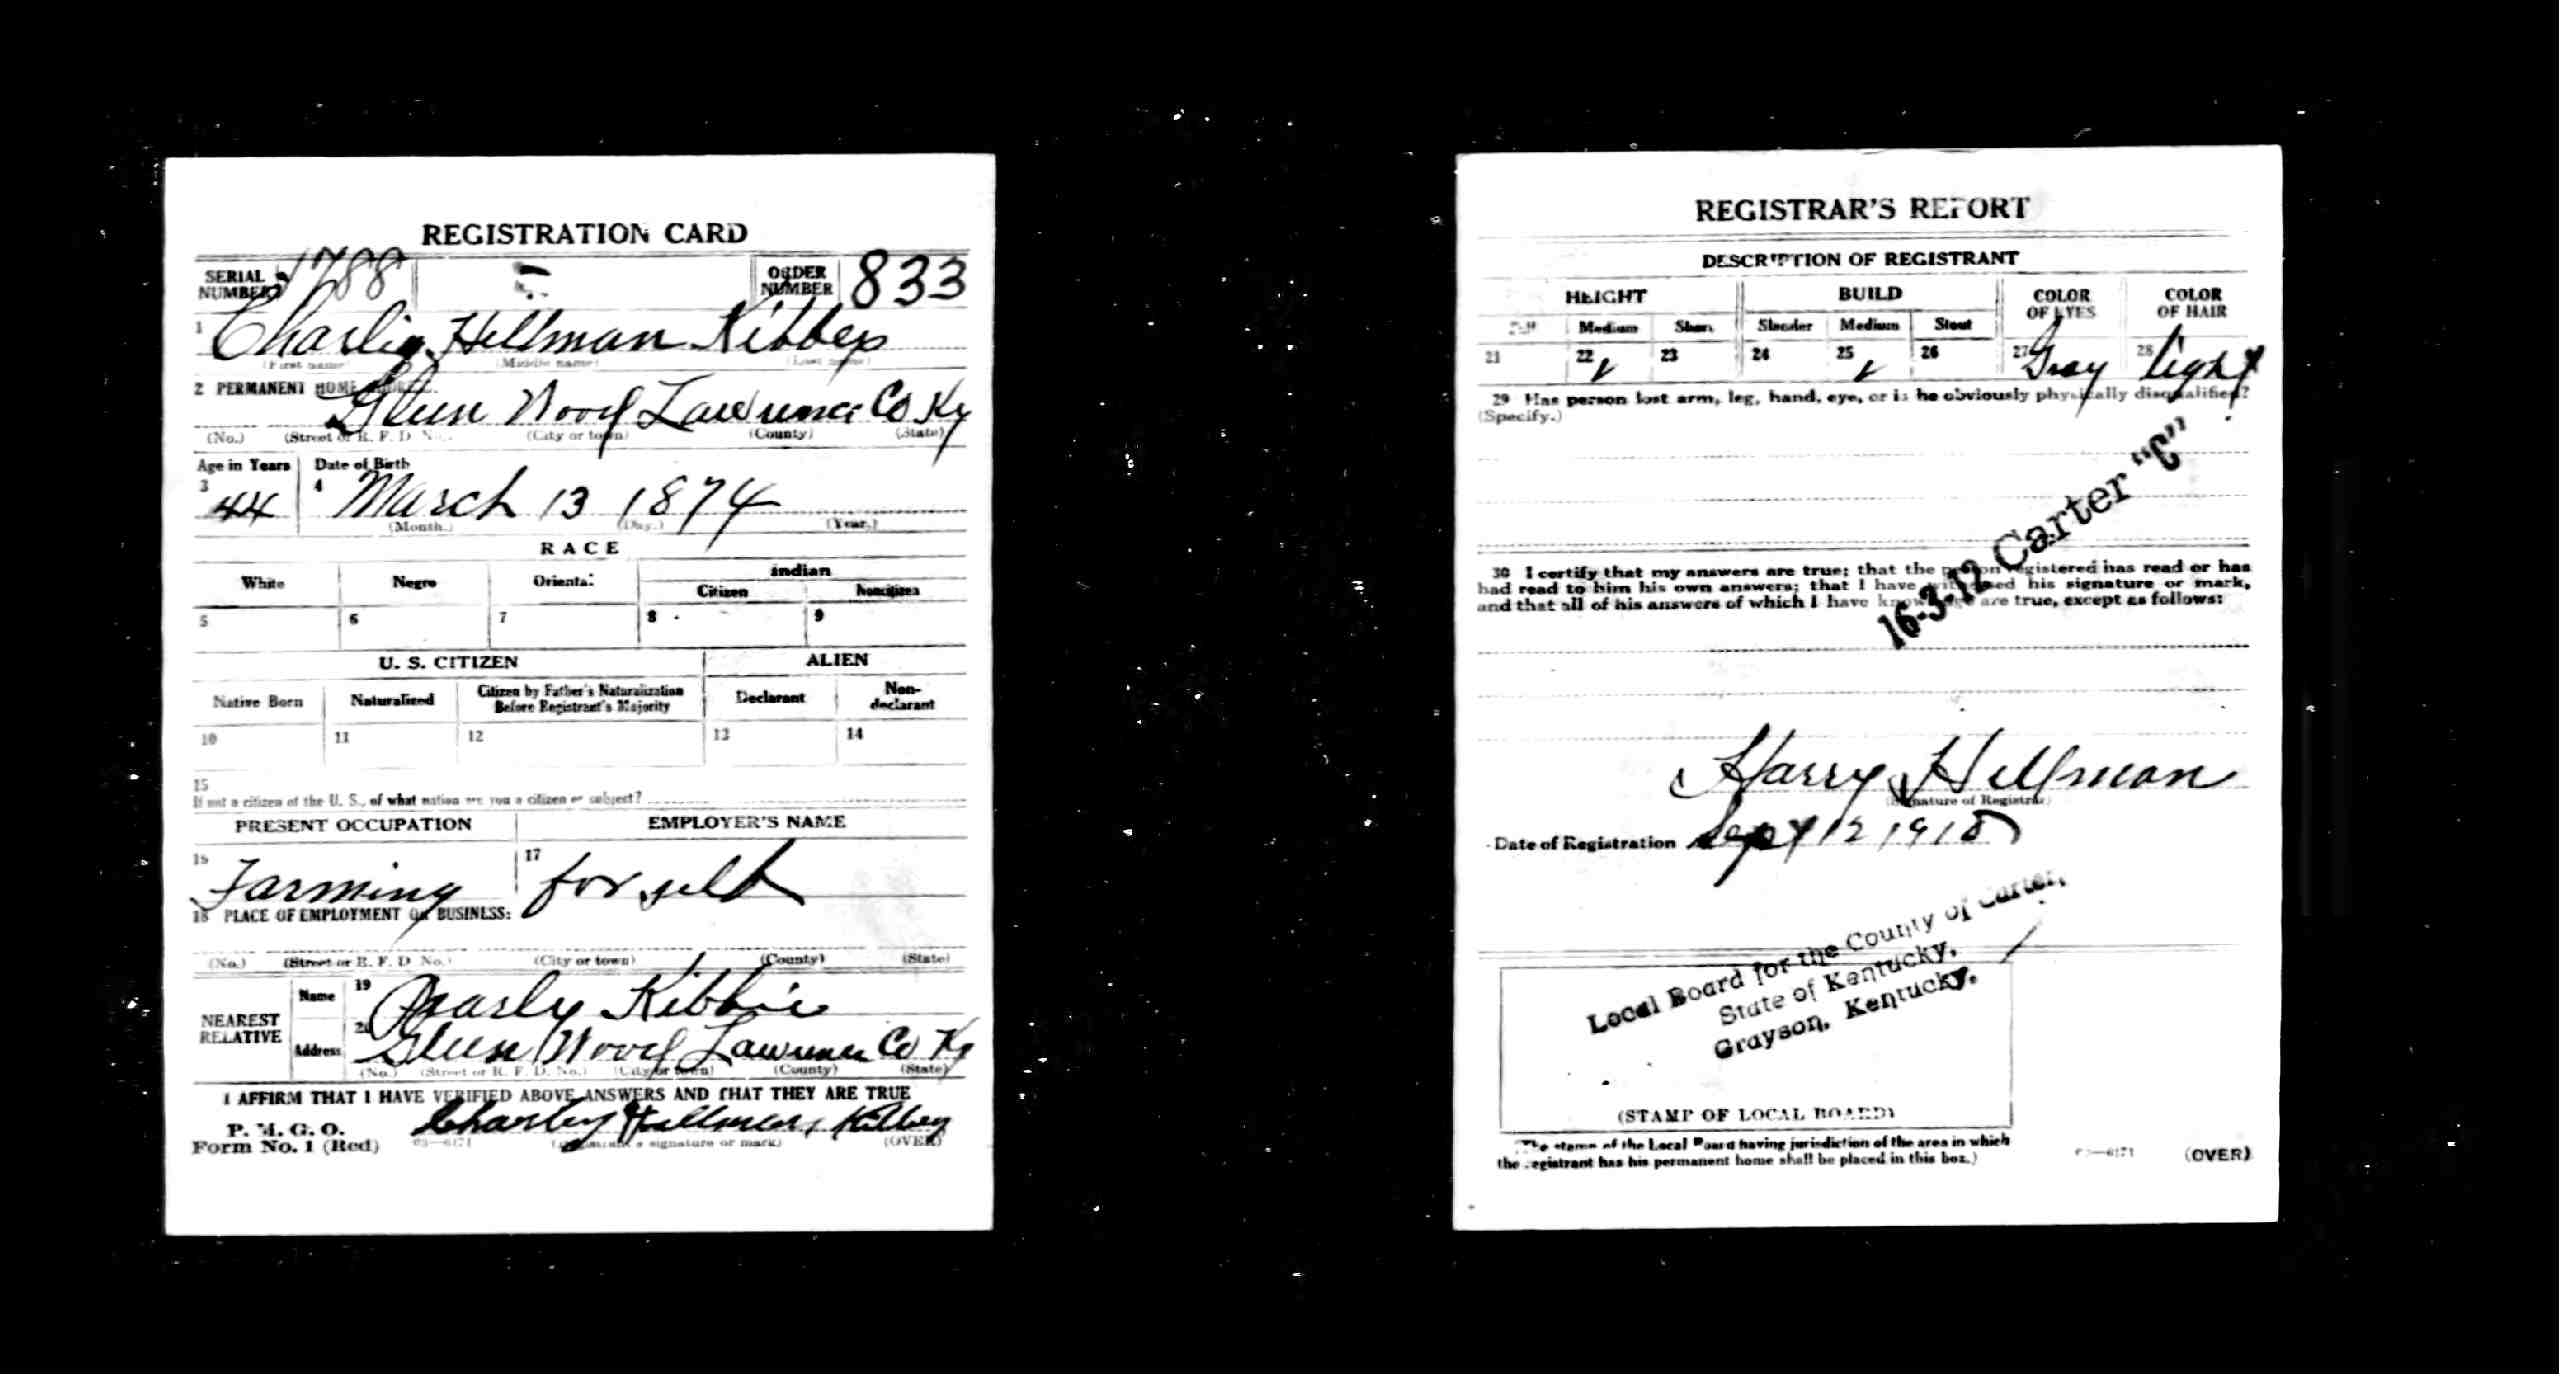 REGISTRATION CARD
SERIAL NUMBER 1788 ORDER NUMBER 833
1 Charlie Hillman Kibbey
(First name) (Middle name) (Last name)
2 PERMANENT HOME ADDRESS:
Lawrence Co Ky
(No.) (Street or R. F. D. No.) (City or town) (County) (State)
Age in Years Date of Birth
3 44 4 March 13 1874
(Month.) (Day.) (Year.)
RACE
White Negro Oriental Indian
Citizen Noncitizen
5 6 7 8 9
U. S. CITIZEN ALIEN
Native Born Naturalized Citizen by Father's Naturalization Before Registrant's Majority Declarant Non-declarant
10 11 12 13 14
15
If not a citizen of the U. S., of what nation are you a citizen or subject?
PRESENT OCCUPATION EMPLOYER'S NAME
16 Farming 17 for self
18 PLACE OF EMPLOYMENT OR BUSINESS:
(No.) (Street or R. F. D. No.) (City or town) (County) (State)
NEAREST RELATIVE Name 19 Kibbie
Address 20 Lawrence Co Ky
(No.) (Street or R. F. D. No.) (City or town) (County) (State)
I AFFIRM THAT I HAVE VERIFIED ABOVE ANSWERS AND THAT THEY ARE TRUE
P. M. G. O.
Form No. 1 (Red) 03—6171 Charley Hillman Kibbey (OVER)
(Registrant's signature or mark)
REGISTRAR'S REPORT
DESCRIPTION OF REGISTRANT
HEIGHT BUILD COLOR OF EYES COLOR OF HAIR
Tall Medium Short Slender Medium Stout
21 22 ✓ 23 24 25 ✓ 26 27 Gray 28 light
29 Has person lost arm, leg, hand, eye, or is he obviously physically disqualified?
(Specify.)
16-3-12 Carter "C"
30 I certify that my answers are true; that the person registered has read or has
had read to him his own answers; that I have witnessed his signature or mark,
and that all of his answers of which I have knowledge are true, except as follows:
Harry Hillman
(Signature of Registrar)
Date of Registration Sept 12 1918
Local Board for the County of Carter,
State of Kentucky,
Grayson, Kentucky.
(STAMP OF LOCAL BOARD)
(The stamp of the Local Board having jurisdiction of the area in which
the registrant has his permanent home shall be placed in this box.)
03—6171 (OVER)